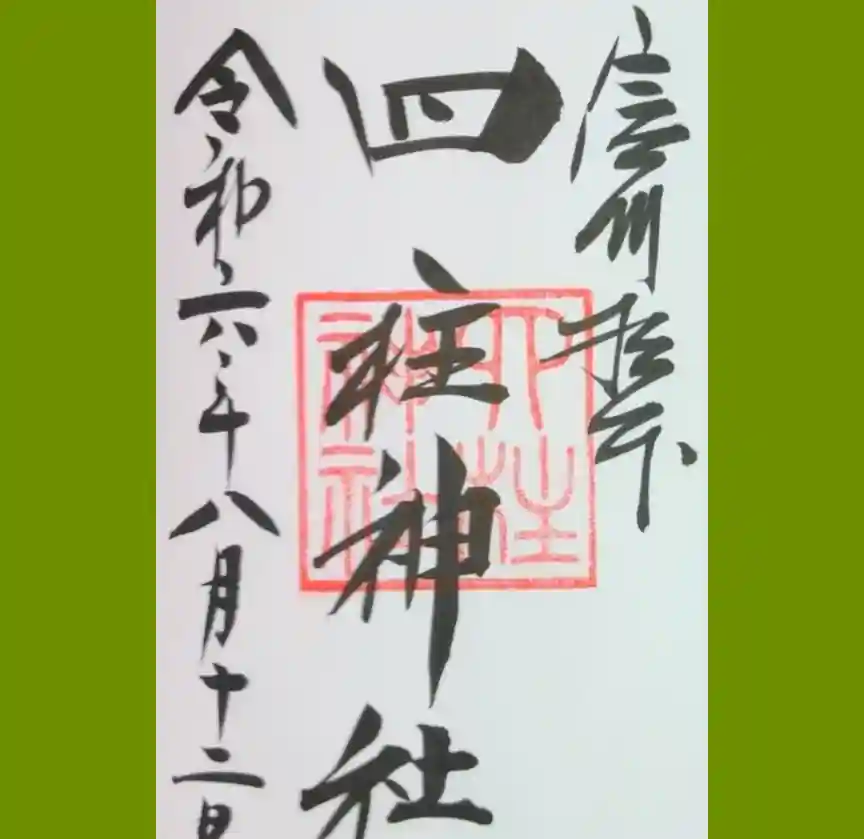 信州松本
四柱神社
四柱
神社
令和六年八月十二日